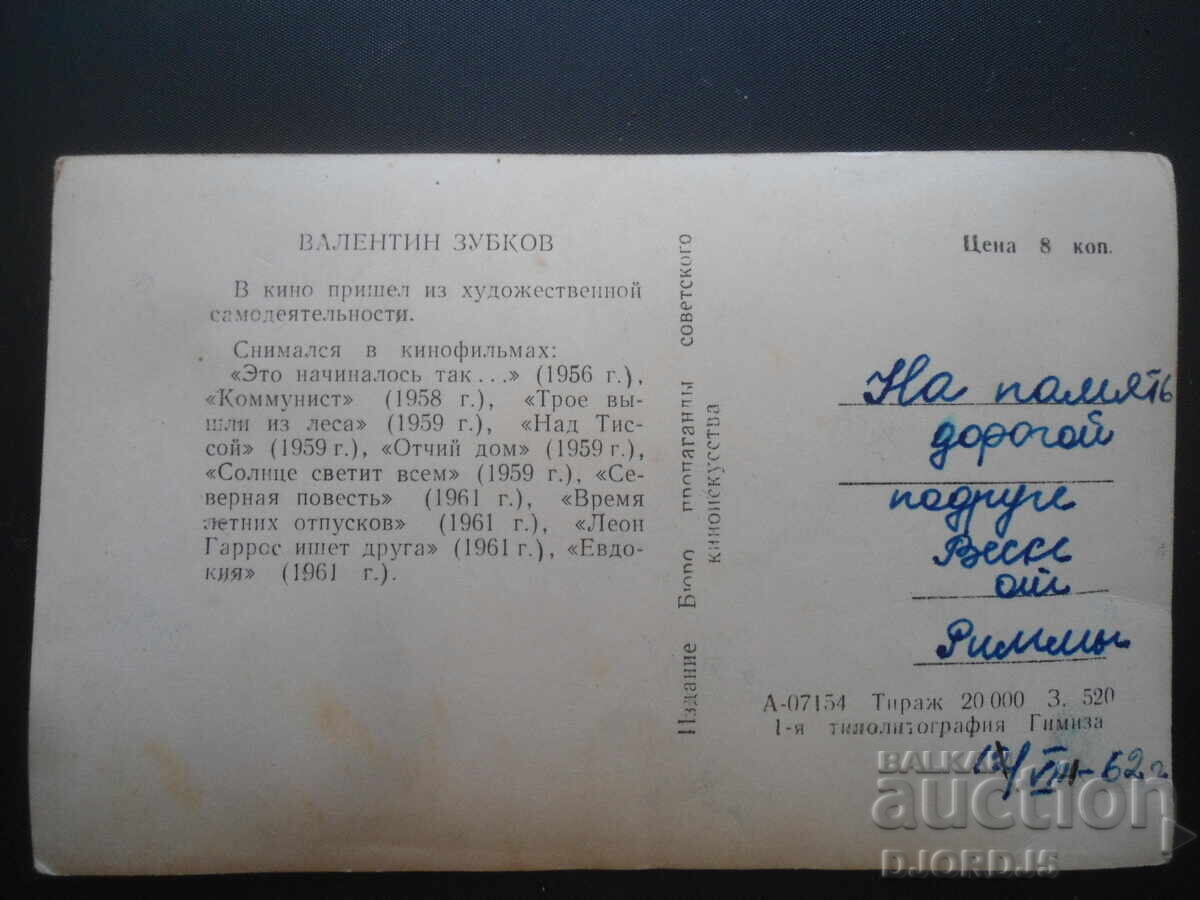 ВАЛЕНТИН ЗУБКОВ
В кино пришел из художественной
самодеятельности.
Снимался в кинофильмах:
«Это начиналось так...» (1956 г.),
«Коммунист» (1958 г.), «Трое вы-
шли из леса» (1959 г.), «Над Тис-
сой» (1959 г.), «Отчий дом» (1959 г.),
«Солнце светит всем» (1959 г.), «Се-
верная повесть» (1961 г.), «Время
летних отпусков» (1961 г.), «Леон
Гаррос ищет друга» (1961 г.), «Евдо-
кия» (1961 г.).
Издание Бюро пропаганды советского
киноискусства
Цена 8 коп.
На память
дорогой
подруге
Веске
от
Риммы
А-07154 Тираж 20 000 З. 520
1-я типолитография Гимиза
VIII-62 г
BALKAN
auction
DJORDJ5